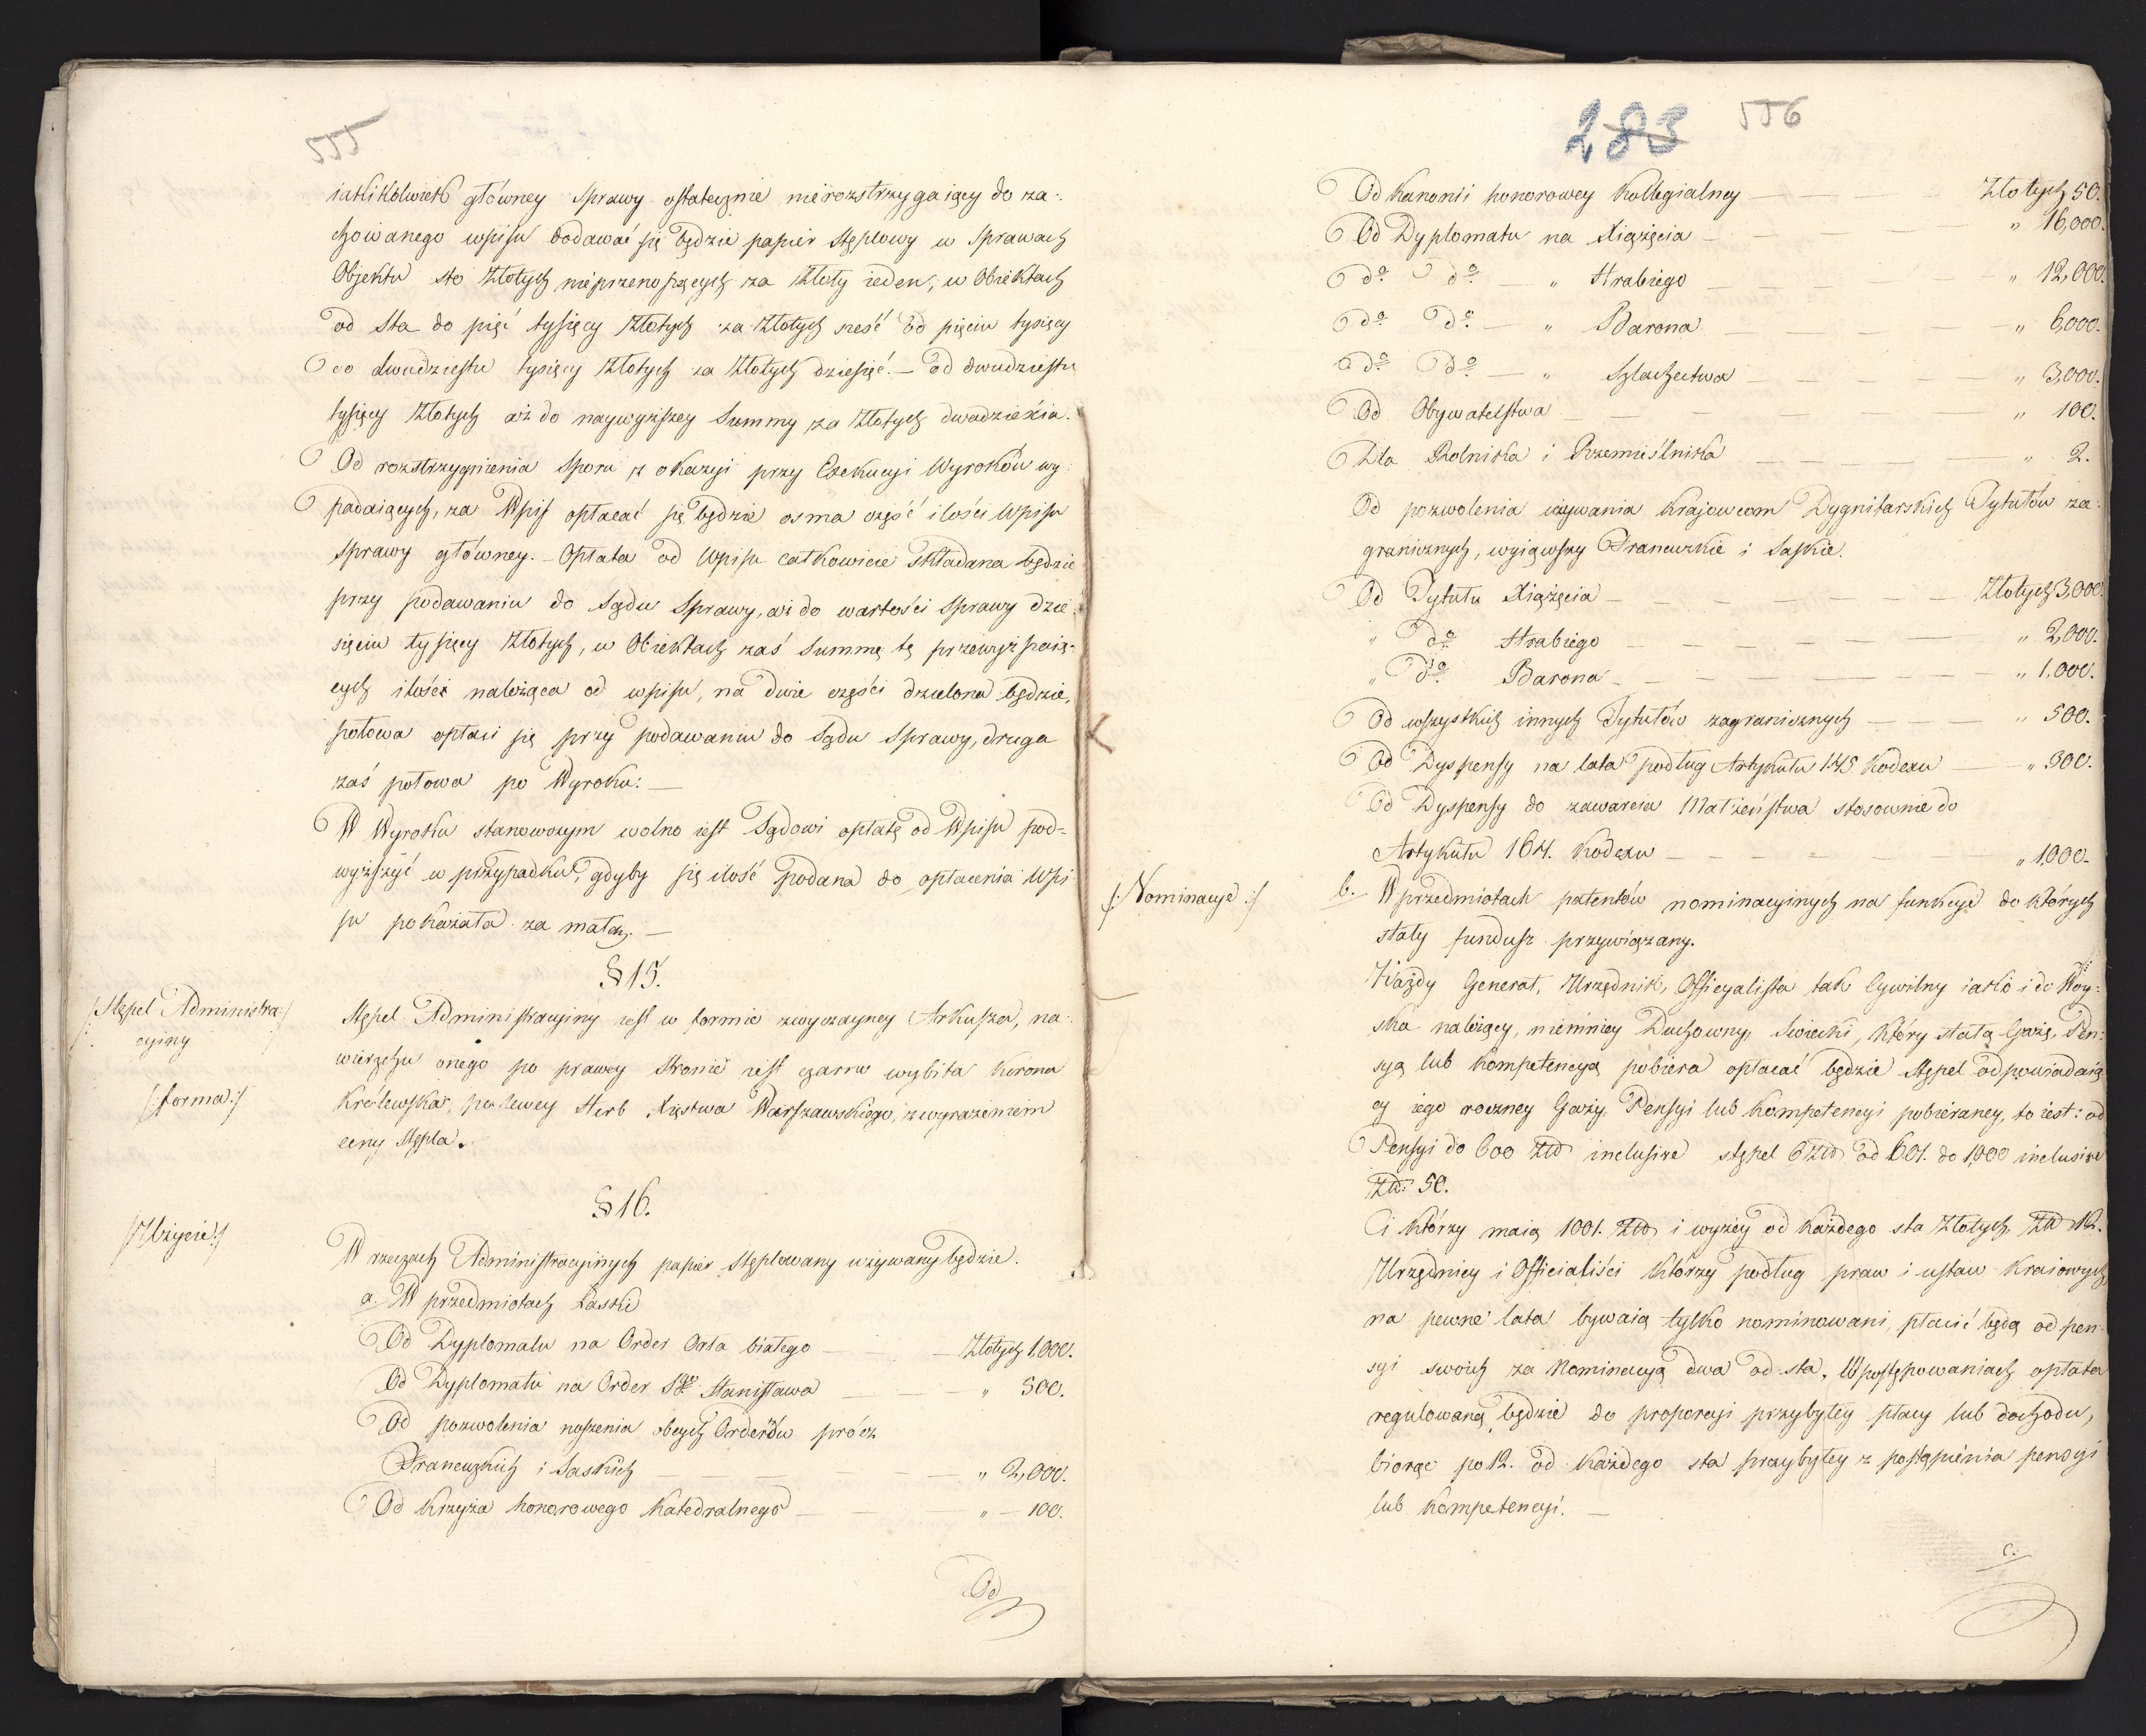 555
iakikolwiek główney sprawy ostatecznie nierozstrzygaiący do za:
chowanego wpisu dodawać się będzie papier stęplowy w sprawach
Objektu sto Złotych nieprzenoszących za Złoty ieden, w Obiektach
od sta do pięć tysięcy Złotych za Złotych sześć od pięciu tysięcy
do dwudziestu tysięcy Złotych za Złotych dziesięć. – od dwudziestu
tysięcy Złotych aż do naywyższey Summy za Złotych dwadzieścia.
Od rozstrzygnienia Sporu z okazyi przy Exekucyi Wyroków wy:
padaiących, za Wpis opłacać się będzie osma część ilości Wpisu
sprawy główney. – Opłata od Wpisu całkowicie składana będzie
przy podawaniu do Sądu Sprawy, aż do wartości sprawy dzie:
sięciu tysięcy Złotych, w Obiektach zaś Summę tę przewyższaią:
cych ilość należąca od wpisu, na dwie części dzielona będzie,
połowa opłaci się przy podawaniu do Sądu Sprawy, druga
zaś połowa po Wyroku. –
W Wyroku stanowczym wolno iest Sądowi opłatę od Wpisu pod=
wyższyć w przypadku, gdyby się ilość podana do opłacenia Wpi
su pokazała za małą. –
§ 15.
/: Stępel Administra:
cyiny :/
Stępel Administracyiny iest w formie zwyczayney Arkusza, na:
wierzchu onego po prawey stronie iest czarno wybita Korona
/: forma :/
Królewska, po lewey Herb Xięstwa Warszawskiego, z wyrażeniem
ceny Stępla.
§ 16.
/: Użycie :/
W rzeczach Administracyinych papier stęplowany używany będzie.
a. W przedmiotach Łaski
Od Dyplomatu na Order Orła białego — Złotych 1,000.
Od Dyplomatu na Order Sgo Stanisława — " 500.
Od pozwolenia noszenia obcych Orderów prócz
Francuzkich i Saskich — " 2,000.
Od Krzyża honorowego Katedralnego — " – 100.
Od
283 556
Od Kanonii honorowey Kollegialney — Złotych 50.
Od Dyplomatu na Xiążęcia — " 16,000.
do do — " Hrabiego — " 12,000.
do do — " Barona — " 6,000.
do do — " Szlachectwa — " 3,000.
Od Obywatelstwa — " 100.
Dla Rolnika i Rzemieślnika — " 2.
Od pozwolenia używania Krajowcom Dygnitarskich Tytułów za:
granicznych, wyiąwszy Francuzkie i Saskie.
Od Tytułu Xiążęcia — Złotych 3,000.
" do Hrabiego — " 2,000.
" do Barona — " 1,000.
Od wszystkich innych Tytułów zagranicznych — " 500.
Od Dyspensy na lata podług Artykułu 145 Kodexu — " 300.
Od Dyspensy do zawarcia Małżeństwa stosownie do
Artykułu 164. Kodexu — " 1,000.
/: Nominacye :/
b. W przedmiotach patentów nominacyinych na funkcye do których
stały fundusz przywiązany.
Każdy Generał, Urzędnik, Officyalista tak Cywilny iako i do Woy:
ska należący, niemniey Duchowny, Swiecki, który stałą Gażę, Pen:
syą lub Kompetencyą pobiera opłacać będzie Stępel odpowiadaią
cy iego roczney Gaży, Pensyi lub Kompetencyi pobieraney, to iest: od
Pensyi do 600 Złt. inclusive stępel 6 Złt. od 601. do 1,000 inclusive
Złt: 50.
Ci którzy maią 1001. Złt. i wyżey od każdego sta Złotych, Złt 12.
Urzędnicy i Officialiści którzy podług praw i ustaw Kraiowych
na pewne lata bywaią tylko nominowani, płacić będą od pen:
syi swoich za Nominacyą dwa od sta. W postępowaniach opłata
regulowaną będzie do proporcyi przybyłey płacy lub dochodu,
biorąc po 12. od każdego sta przybyłey z postąpienia pensyi
lub Kompetencyi. –
c.